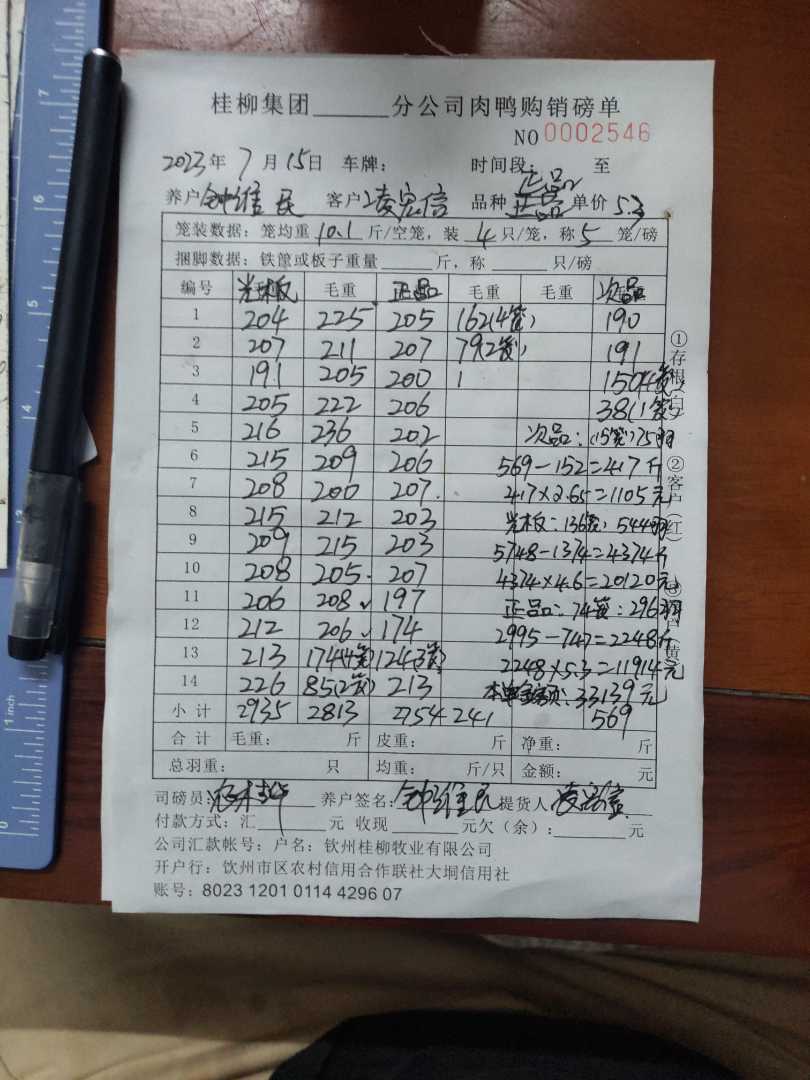 桂柳集团______分公司肉鸭购销磅单
NO 0002546
2023年7月15日 车牌: 时间段: 至
正品
养户 钟维民 客户 凌宏信 品种 正品 单价 5.3
笼装数据: 笼均重 10.1 斤/空笼, 装 4 只/笼, 称 5 笼/磅
捆脚数据: 铁筐或板子重量______斤, 称______只/磅
编号 光木板 毛重 正品 毛重 毛重 次品
1 204 225 205 162(4笼) 190
2 207 211 207 79(2笼) 191
3 191 205 200 1 150(4笼)
4 205 222 206 38(1笼)
5 216 236 202 次品:(15笼)75羽
6 215 209 206 569-152=417斤
7 208 200 207. 417×2.65=1105元
8 215 212 203 光木板:136笼:544羽
9 209 215 203 5748-1374=4374斤
10 208 205. 207 4374×4.6=20120元
11 206 208 197 正品:74笼:296羽
12 212 206 174 2995-747=2248斤
13 213 174(4笼) 124(3笼) 2248×5.3=11914元
14 226 85(2笼) 213 33139元
小计 2935 2813 2754 241 569
合计 毛重: 斤 皮重: 斤 净重: 斤
总羽重: 只 均重: 斤/只 金额: 元
司磅员: 养户签名: 钟维民 提货人 凌宏信
付款方式: 汇______元 收现______元欠(余):______元
公司汇款帐号: 户名: 钦州桂柳牧业有限公司
开户行: 钦州市区农村信用合作联社大垌信用社
账号: 8023 1201 0114 4296 07
①存根(白) ②客户(红) ③养户(黄)
1 inch